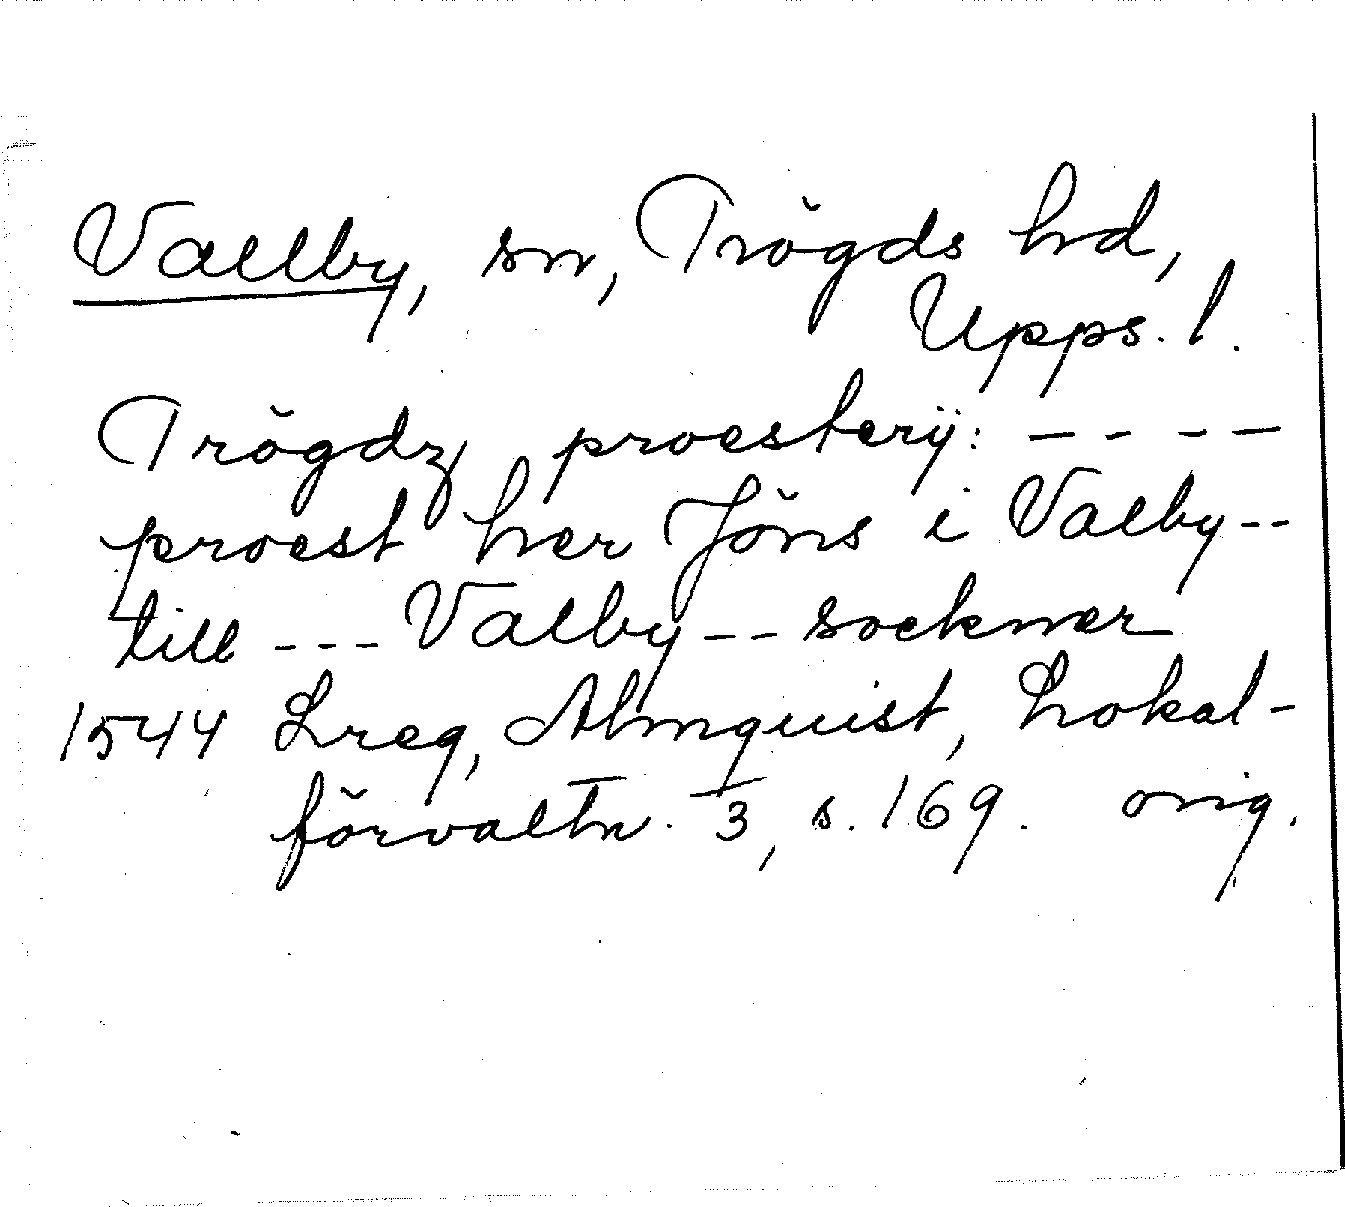 Vallby, sn, Trögds hd,
Upps. l.
Trögdz proesterÿ: ----
proest her Jöns i Valby--
till --- Valby -- soekner
1544 Lreg, Almquist, Lokal-
förvaltn. 3, s. 169. orig.